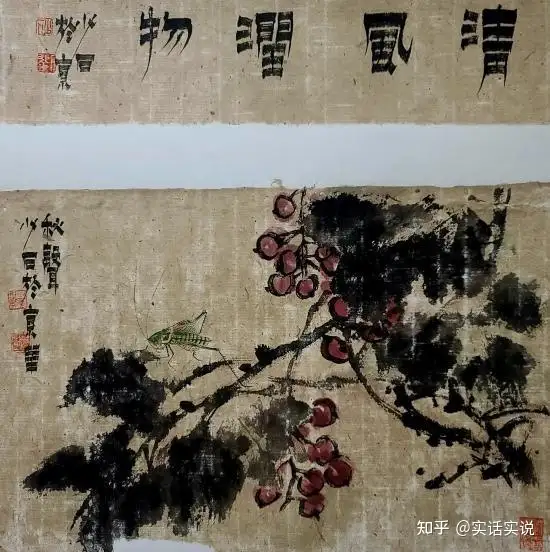 清風潤物
少石於京
秋聲
少石於京
知乎 @实话实说